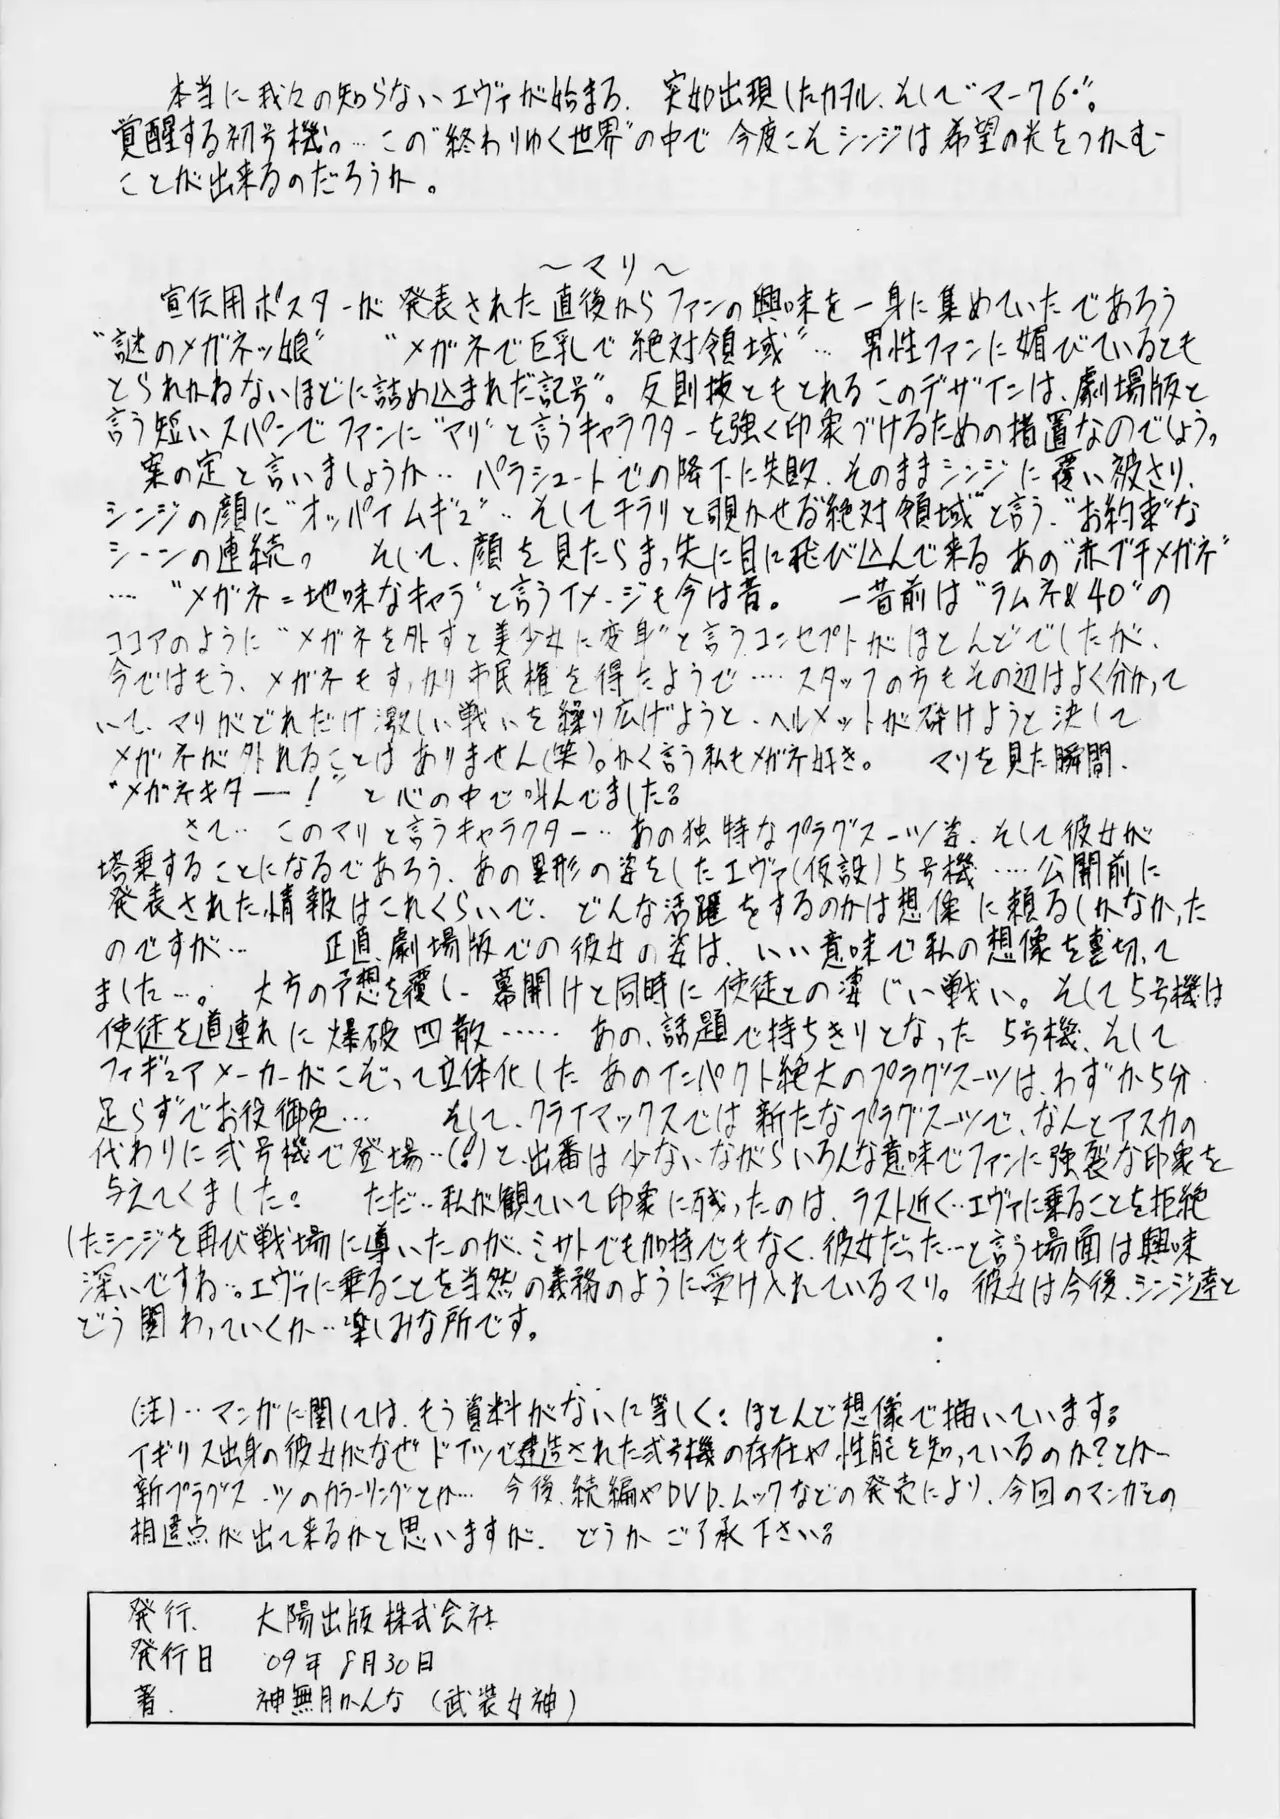 本当に我々の知らないエヴァが始まる、突如出現したカヲル、そして"マーク6"。
覚醒する初号機。…この"終わりゆく世界"の中で今度こそシンジは希望の光をつかむ
ことが出来るのだろうか。
～マリ～
宣伝用ポスターが発表された直後からファンの興味を一身に集めていたであろう
"謎のメガネッ娘" "メガネで巨乳で絶対領域"… 男性ファンに媚びているとも
とられかねないほどに詰め込まれた"記号"。反則技ともとれるこのデザインは、劇場版と
言う短いスパンでファンに"マリ"と言うキャラクターを強く印象づけるための措置なのでしょう。
案の定と言いましょうか…パラシュートでの降下に失敗、そのままシンジに覆い被さり、
シンジの顔に"オッパイムギュ"…そしてチラリと覗かせる"絶対領域"と言う、"お約束"な
シーンの連続。 そして、顔を見たらまっ先に目に飛び込んで来るあの"赤ブチメガネ"
…"メガネ=地味なキャラ"と言うイメージも今は昔。 一昔前は"ラムネ&40"の
ココアのように"メガネを外すと美少女に変身"と言うコンセプトがほとんどでしたが、
今ではもう、メガネもすっかり市民権を得たようで…スタッフの方もその辺はよく分かって
いて、マリがどれだけ激しい戦いを繰り広げようと、ヘルメットが砕けようと決して
メガネが外れることはありません(笑)。かく言う私もメガネ好き。 マリを見た瞬間、
"メガネキター!"と心の中で叫んでました。
さて…このマリと言うキャラクター…あの独特なプラグスーツ姿、そして彼女が
塔乗することになるであろう、あの異形の姿をしたエヴァ(仮設)5号機……公開前に
発表された情報はこれくらいで、どんな活躍をするのかは想像に頼るしかなかった
のですが… 正直、劇場版での彼女の姿は、いい意味で私の想像を裏切って
ました…。 大方の予想を覆し、幕開けと同時に使徒との凄じい戦い。そして5号機は
使徒を道連れに爆破四散…… あの、話題で持ちきりとなった5号機、そして
フィギュアメーカーがこぞって立体化したあのインパクト絶大のプラグスーツは、わずか5分
足らずでお役御免… そして、クライマックスでは新たなプラグスーツで、なんとアスカの
代わりに弐号機で登場…(!)と、出番は少ないながらいろんな意味でファンに強裂な印象を
与えてくました。 ただ…私が観ていて印象に残ったのは、ラスト近く…エヴァに乗ることを拒絶
したシンジを再び戦場に導いたのが、ミサトでも加持でもなく、彼女だった…と言う場面は興味
深いですね…。エヴァに乗ることを当然の義務のように受け入れているマリ。彼女は今後、シンジ達と
どう関わっていくか…楽しみな所です。
(注)…マンガに関しては、もう資料がないに等しく、ほとんど想像で描いています。
イギリス出身の彼女がなぜドイツで建造された弐号機の存在や性能を知っているのか?とか
新プラグスーツのカラーリングとか… 今後、続編やDVD、ムックなどの発売により、今回のマンガとの
相違点が出て来るかと思いますが、どうかご了承下さい。
発行. 大陽出版株式会社
発行日 '09年8月30日
著. 神無月かんな(武装女神)